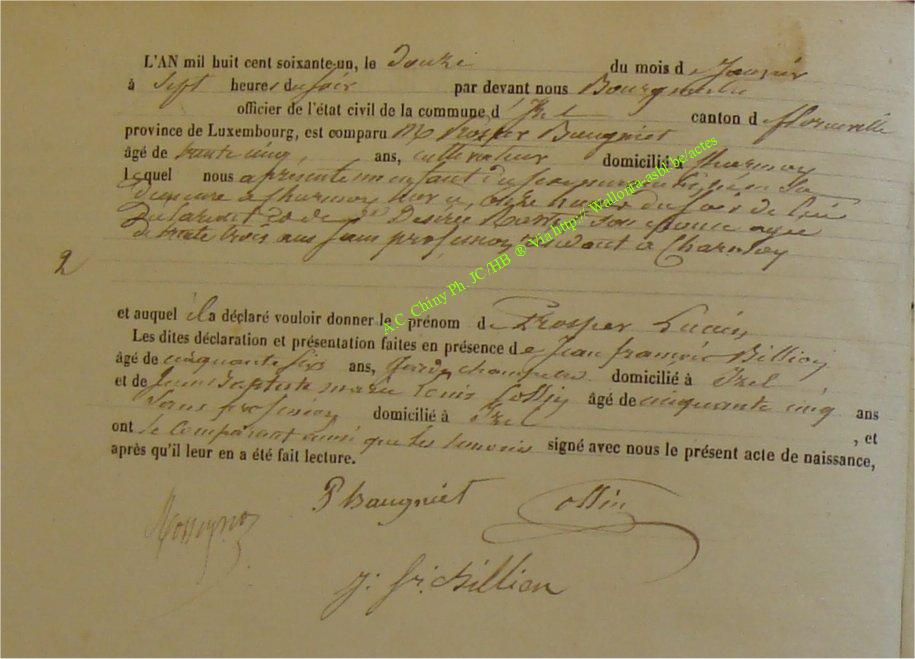 L'AN mil huit cent soixante-un, le Douze du mois de Janvier
à Sept heures du soir par devant nous Bourgmestre
officier de l'état civil de la commune d'Izel canton de florenville
province de Luxembourg, est comparu Mr Prosper Baugniet
âgé de trente cinq, ans, cultivateur domicilié à
lequel nous a présenté un enfant du sexe masculin né en sa
demeure à onze heures du soir de lui
Désirée son épouse agée
de trente trois ans sans profession
2
et auquel il a déclaré vouloir donner le prénom de Prosper Lucien
Les dites déclaration et présentation faites en présence de Jean françois Billion
âgé de cinquante six ans, Garde champêtre domicilié à Izel
et de Jean Baptiste marie Louis Collin âgé de cinquante cinq ans
Sans profession domicilié à Izel , et
ont le Comparant ainsi que les temoins signé avec nous le présent acte de naissance,
après qu'il leur en a été fait lecture.
P Baugniet Collin
J. fr. Billion
A.C. Chiny Ph. JC/HB ® Via http://Wallonia-asbl.be/actes